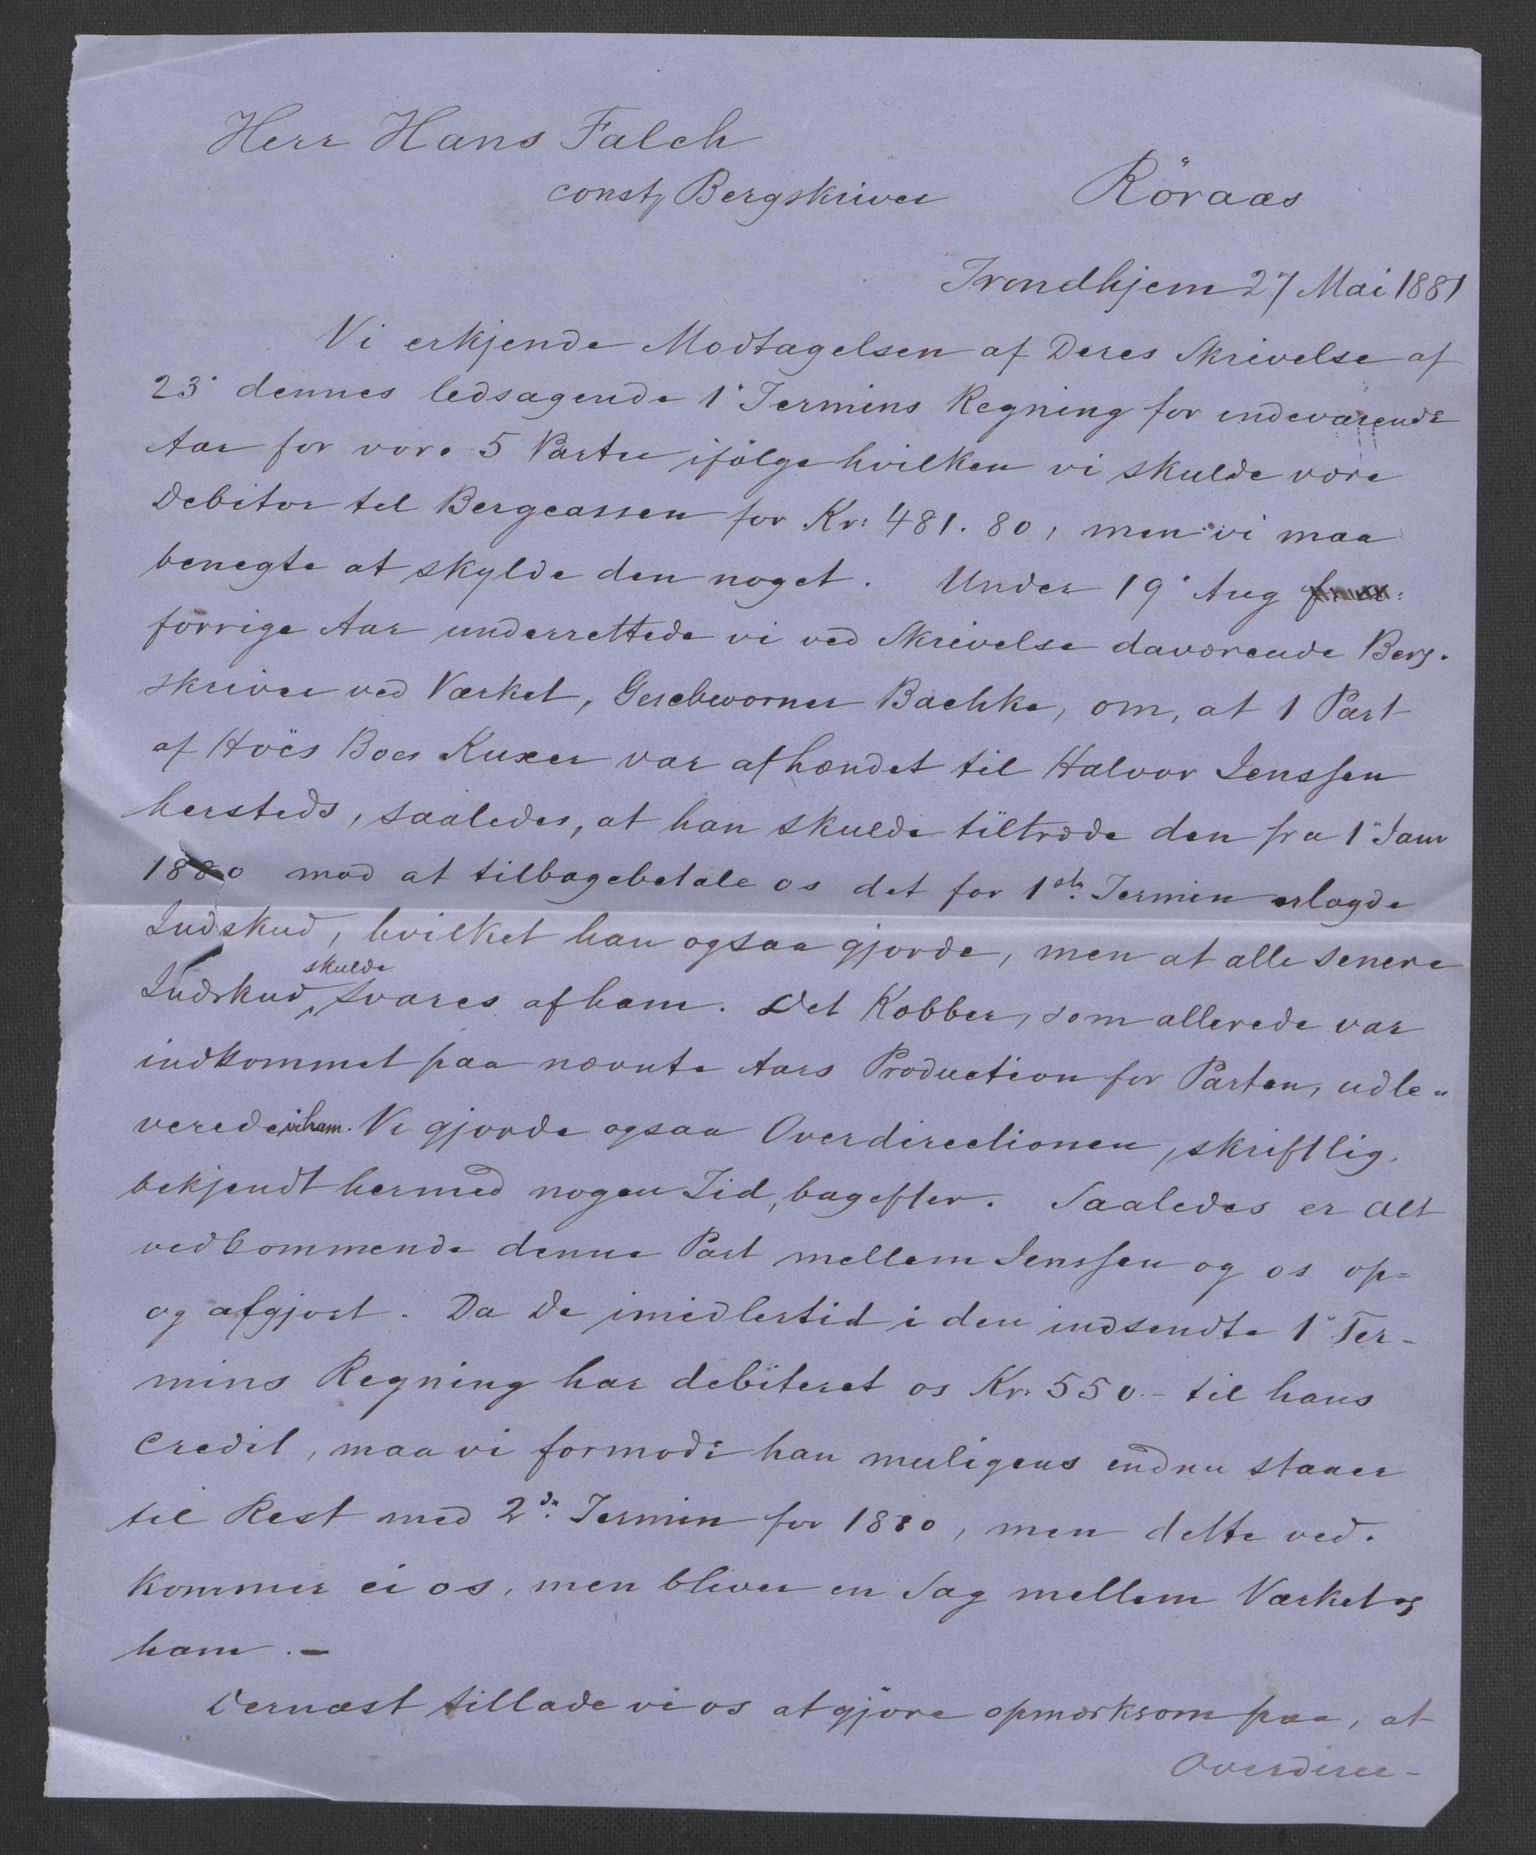 Herr Hans Falch
const. Bergskriver Röraas
Trondhjem 27 Mai 1881
Vi erkjende Modtagelsen af Deres Skrivelse af
23' dennes ledsagende 1' Termins Regning for indeværende
Aar for vore 5 Parter ifölge hvilken vi skulde være
Debitor til Bergcassen for Kr: 481. 80, men vi maa
benegte at skylde den noget. Under 19' Aug
forrige Aar underrettede vi ved Skrivelse daværende Berg-
skriver ved Værket, Geschworner Bachke, om, at 1 Part
af Hoës Boes Kuxer var afhændet til Halvor Jenssen
hersteds, saaledes, at han skulde tiltræde den fra 1' Janr
1880 mod at tilbagebetale os det for 1ste. Termin erlagde
Indskud, hvilket han ogsaa gjorde, men at alle senere
Indskud skulde svares af ham. Det Kobber, som allerede var
indkommet paa nævnte Aars Production for Parten, udle-
verede vi ham. Vi gjorde ogsaa Overdirectionen, skriftlig
bekjendt hermed nogen Tid, bagefter. Saaledes er Alt
vedkommende denne Part mellem Jenssen og os op-
og afgjort. Da De imidlertid i den indsendte 1' Ter-
mins Regning har debiteret os Kr: 550.- til hans
Credit, maa vi formode han muligens endnu staaer
til Rest med 2den. Termin for 1880, men dette ved-
kommer ei os, men bliver en Sag mellem Værket og
ham. -
Dernæst tillade vi os at gjöre opmærksom paa, at
Overdirec-